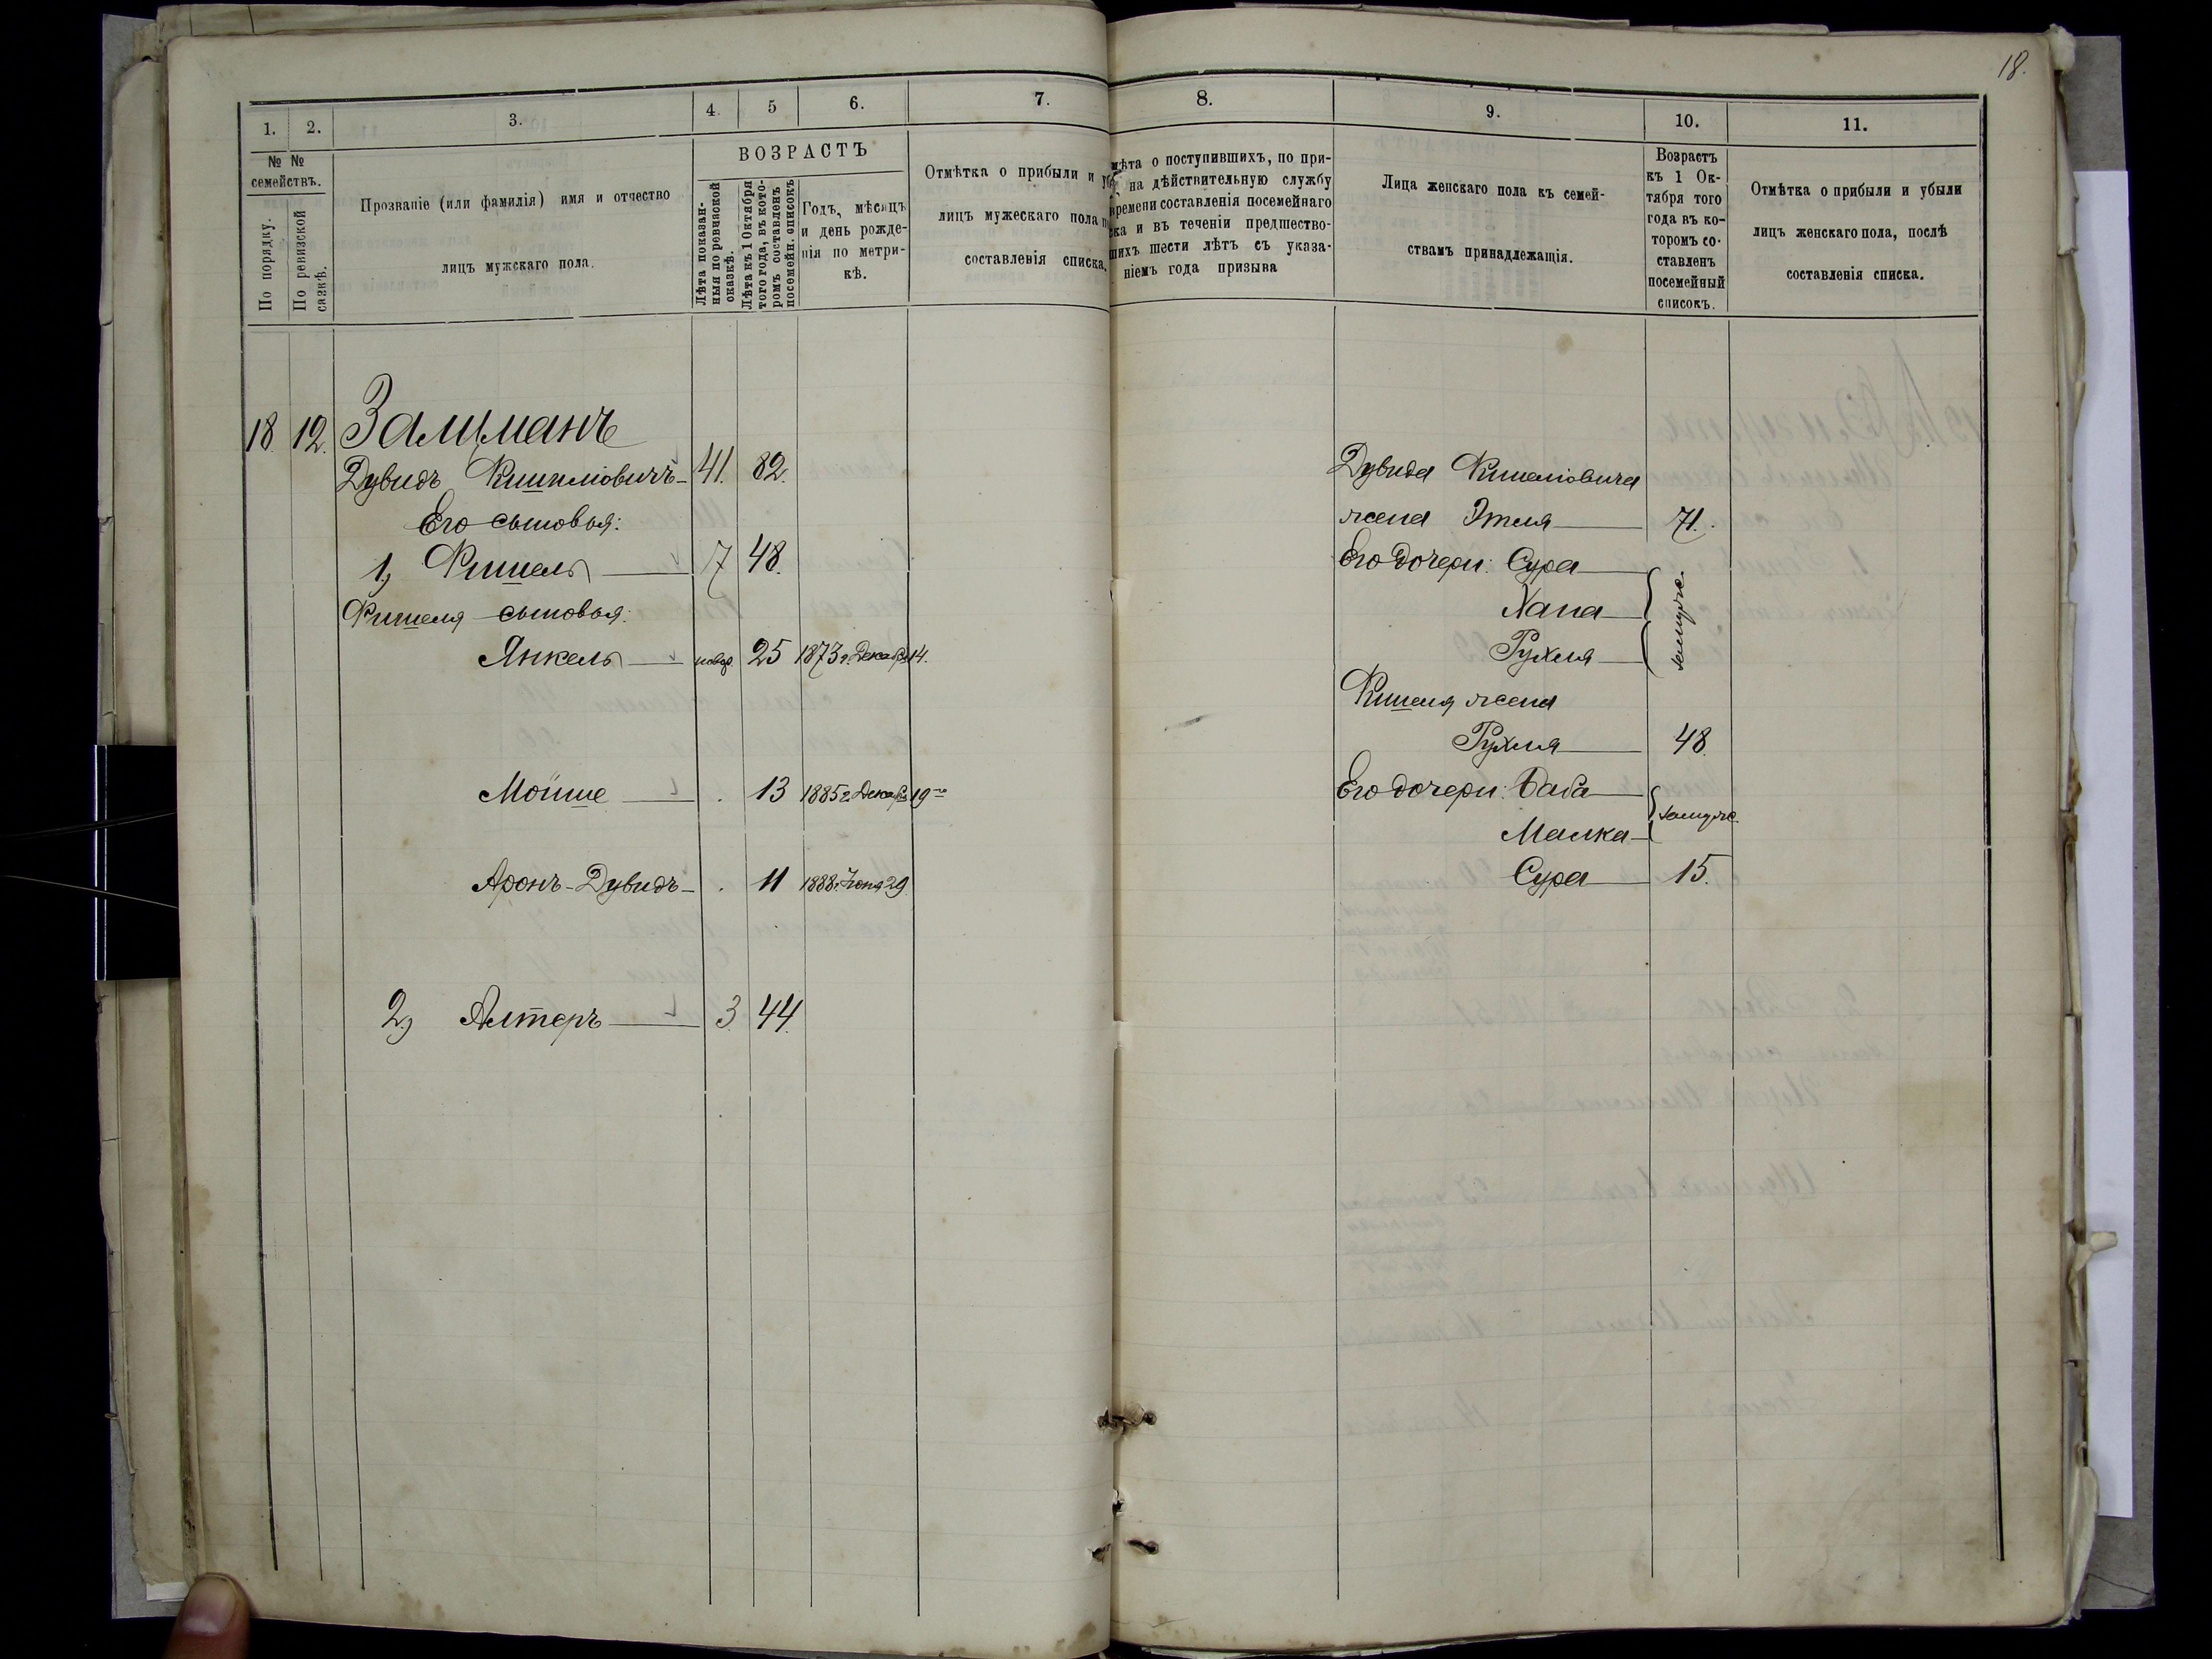 18.
1. 2. 3. 4. 5 6. 7. 8. 9. 10. 11.
№ № семействъ.
По порядку.
По ревизской сказкѣ.
Прозваніе (или фамилія) имя и отчество
лицъ мужскаго пола.
ВОЗРАСТЪ
Лѣта показан-
ныя по ревизской
сказкѣ.
Лѣта къ 1 Октября
того года, въ кото-
ромъ составленъ
посемейн. списокъ
Годъ, мѣсяцъ
и день рожде-
нія по метри-
кѣ.
Отмѣтка о прибыли и
лицъ мужескаго пола
составленія списка.
мѣта о поступившихъ, по при-
на дѣйствительную службу
времени составленія посемейнаго
ска и въ теченіи предшество-
шихъ шести лѣтъ съ указа-
ніемъ года призыва
Лица женскаго пола къ семей-
ствамъ принадлежащія.
Возрастъ
къ 1 Ок-
тября того
года въ ко-
торомъ со-
ставленъ
посемейный
списокъ.
Отмѣтка о прибыли и убыли
лицъ женскаго пола, послѣ
составленія списка.
18 12. Залцманъ
Дувидъ Фишиліовичъ 41. 82.
Его сыновья:
1, Фишель 7 48.
Фишеля сыновья:
Янкель новор. 25 1873 г. Декабря 14.
Мойше . 13 1885 г. Декабря 19го
Аронъ-Дувидъ . 11 1888 г. Іюня 29
2, Алтеръ 3. 44.
Дувида Фишеліовича
жена Этля 71.
Его дочери: Сура
Хана
Рухля
замужс.
Фишеля жена
Рухля 48.
Его дочери: Баба
Малка
замужс.
Сура 15.